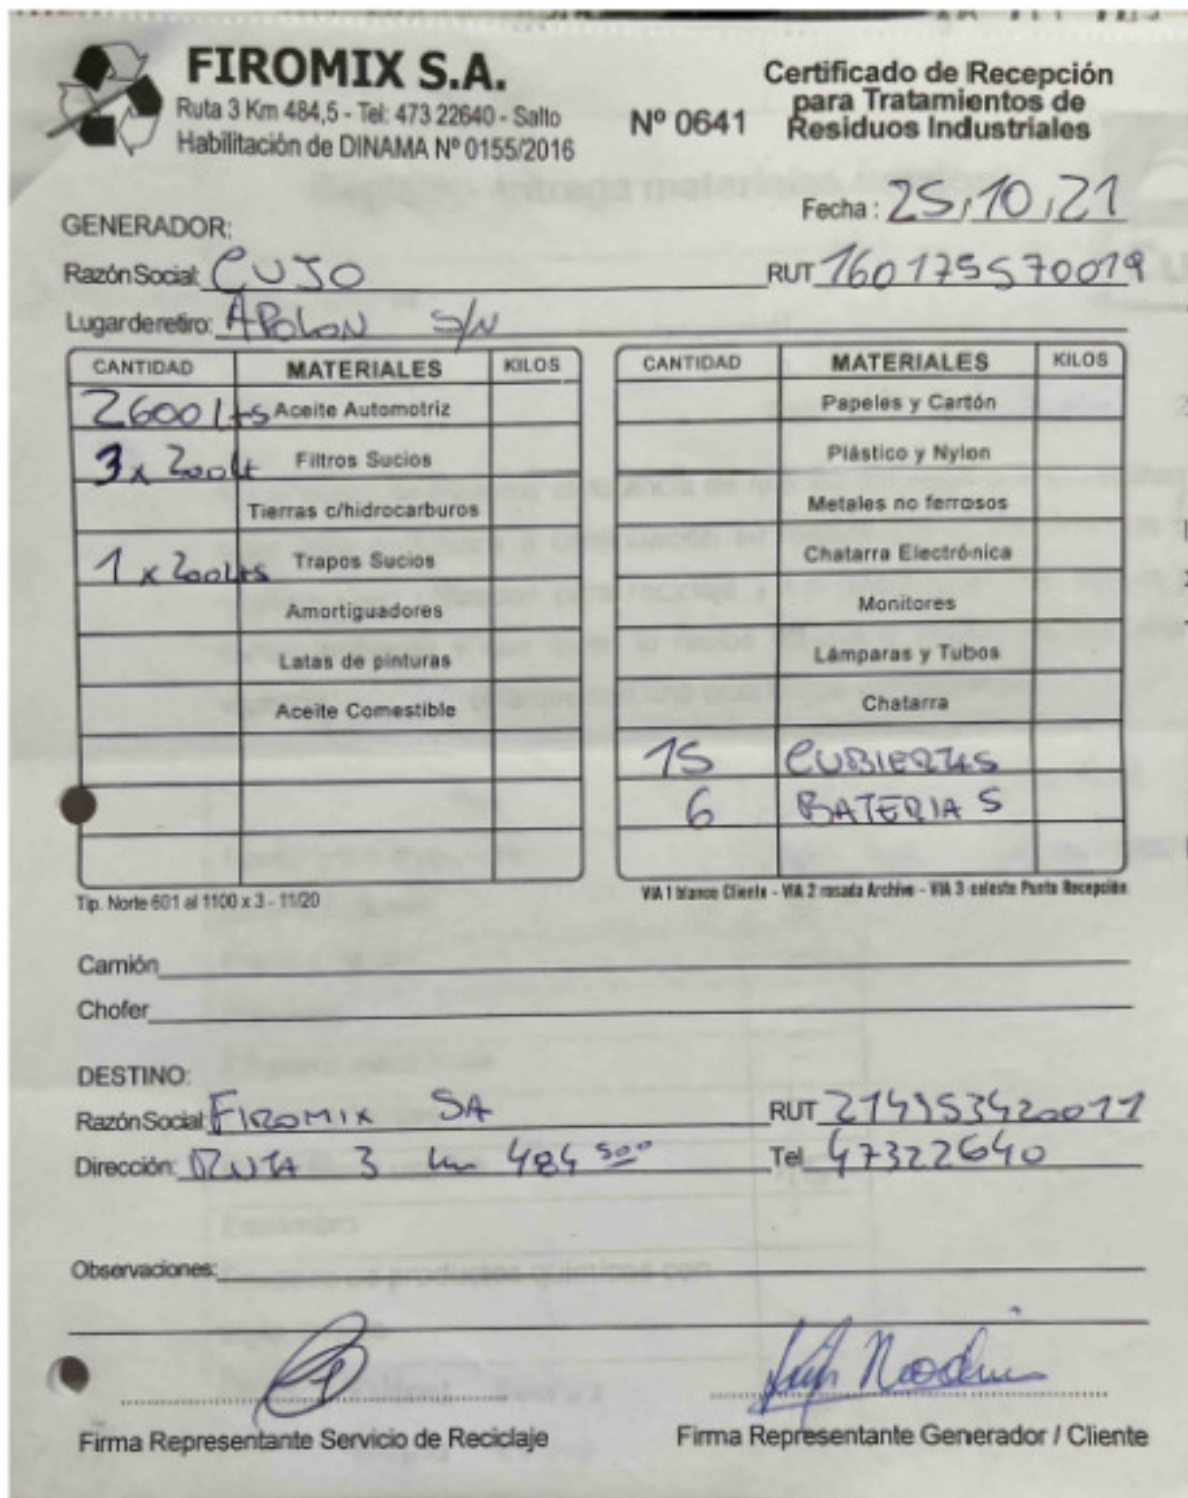 FIROMIX S.A.
Ruta 3 Km 484,5 - Tel: 473 22640 - Salto
Habilitación de DINAMA Nº 0155/2016
Nº 0641
Certificado de Recepción
para Tratamientos de
Residuos Industriales
Fecha: 25,10,21
GENERADOR:
Razón Social: CUJO RUT 160175570019
Lugar de retiro: APOLON S/N
CANTIDAD MATERIALES KILOS
2600 Lts Aceite Automotriz
3 x 200Lt Filtros Sucios
Tierras c/hidrocarburos
1 x 200Lts Trapos Sucios
Amortiguadores
Latas de pinturas
Aceite Comestible
CANTIDAD MATERIALES KILOS
Papeles y Cartón
Plástico y Nylon
Metales no ferrosos
Chatarra Electrónica
Monitores
Lámparas y Tubos
Chatarra
15 CUBIERTAS
6 BATERIAS
Tip. Norte 601 al 1100 x 3 - 11/20
VIA 1 blanco Cliente - VIA 2 rosada Archivo - VIA 3 celeste Punto Recepción
Camión
Chofer
DESTINO:
Razón Social: FIROMIX SA RUT 214953420011
Dirección: RUTA 3 km 484 500 Tel 47322640
Observaciones:
Firma Representante Servicio de Reciclaje
Firma Representante Generador / Cliente